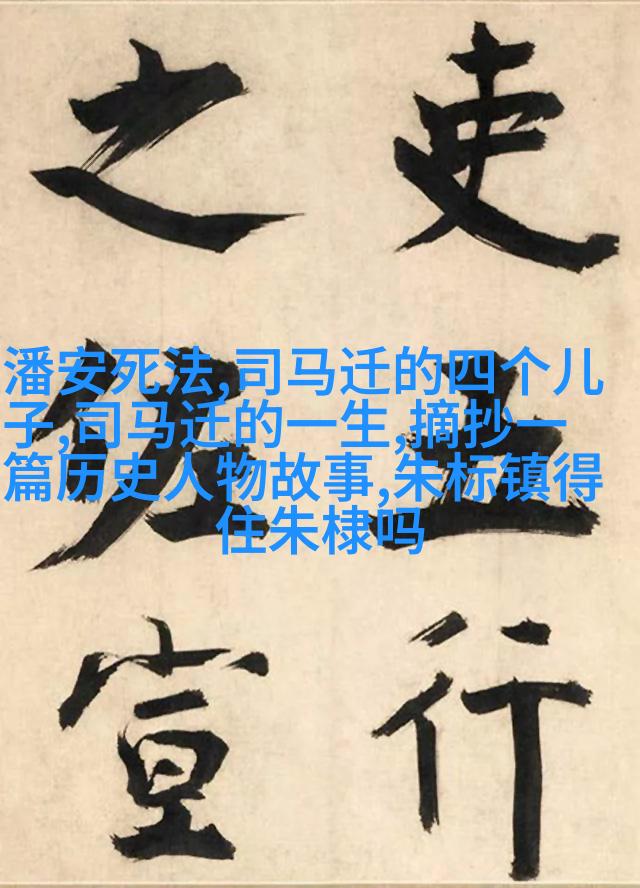 潘安死法,司马迁的四个儿
子,司马迁的一生,摘抄一
篇历史人物故事,朱标镇得
住朱棣吗
吏行
之宣